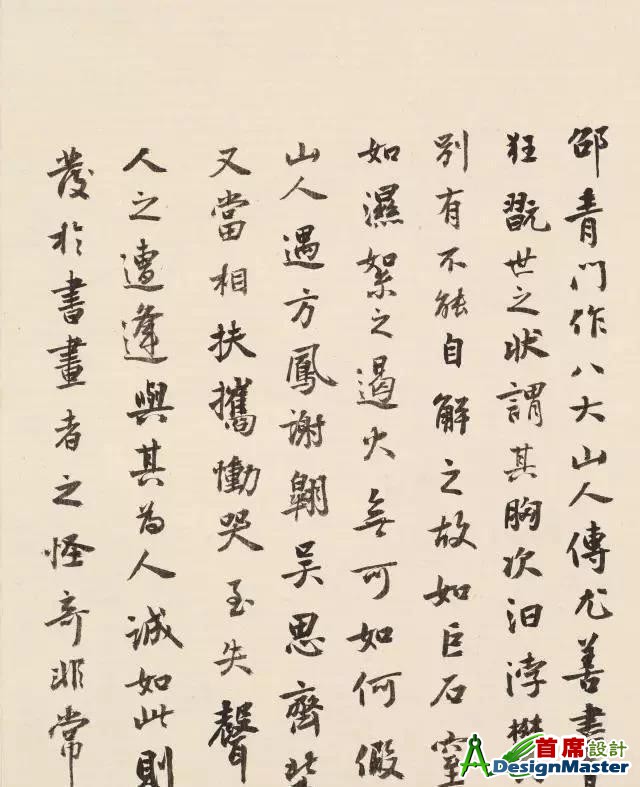 邵青門作八大山人傳尤善書
狂翫世之狀謂其胸次汩浡
別有不能自解之故如巨石窒
如濕絮之遏火無可如何假
山人遇方鳳謝翱吳思齊
又當相扶攜慟哭至失聲
人之遭逢與其為人誠如此則
發於書畫者之怪奇非常
首席設計
DesignMaster